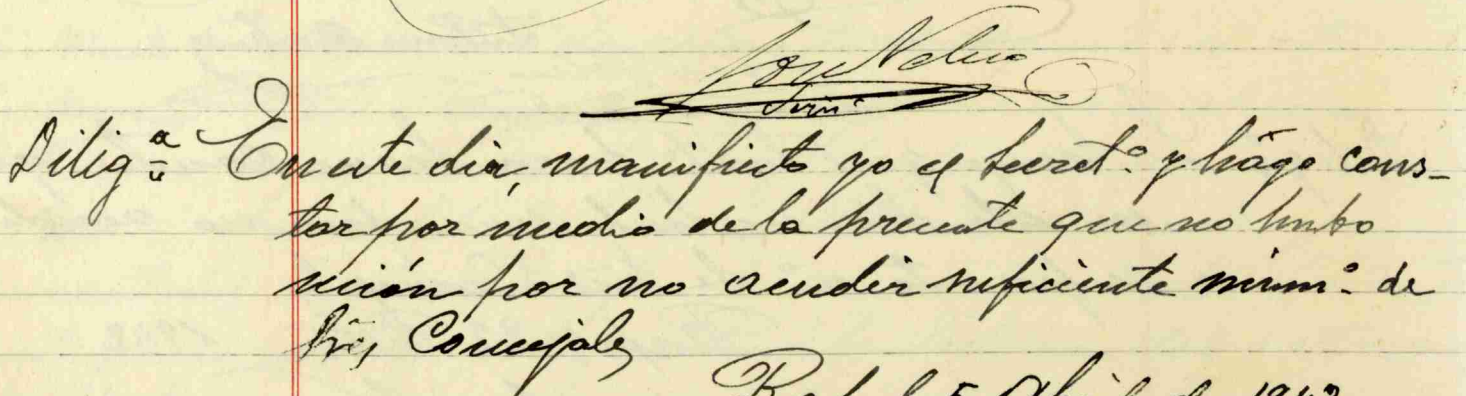 Diligª En este dia, manifiesto yo el Secretº y hago cons-
tar por medio de la presente que no hubo
sesión por no acudir suficiente númº de
Sres Concejales
5 Abril de 1942